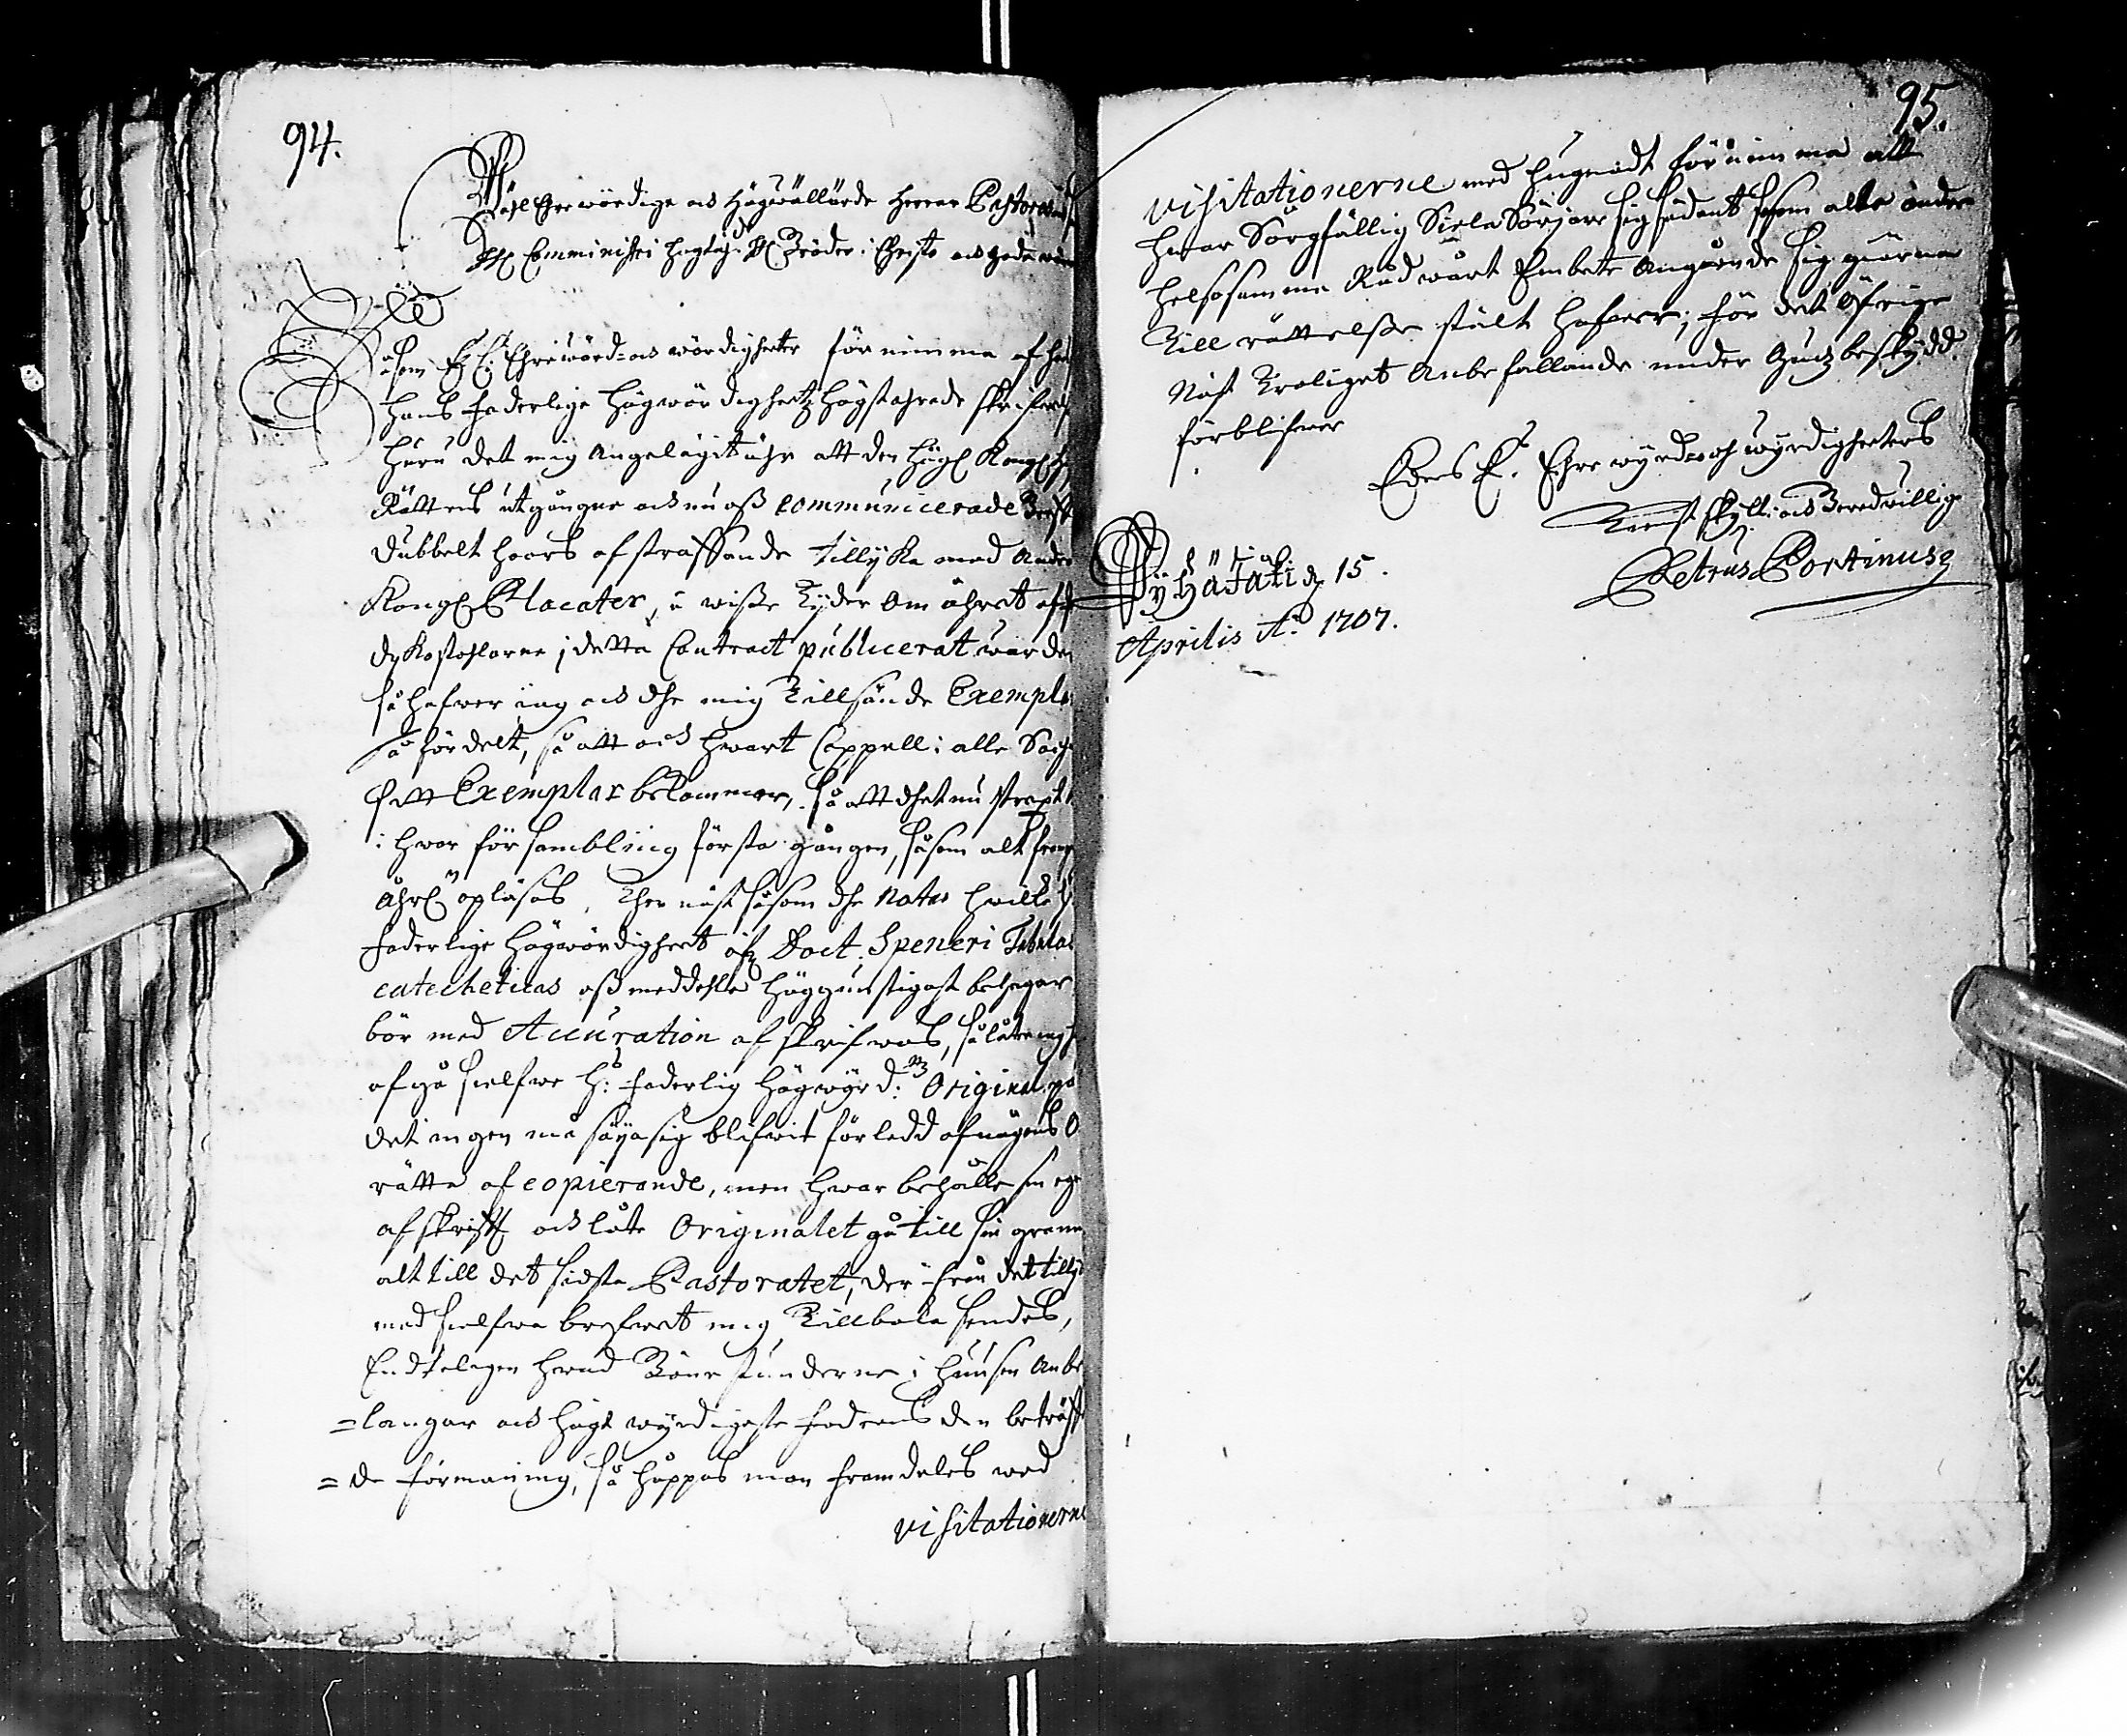 94.
Wähl Ehrewördige och Högwällärde Herrar Pastores
Comministri Högtähr. Bröder i Christo och gode wän
Såsom E. E. Ehrewörd= och wördigheeter förnimma af
Hans Faderlige Högwördigheetz Högstährade skrifwelse
huru det mig angelägit ähr att den Högl. Kongl.
Rättens utgångne och nu oss communicerade
dubbelt hoors afstraffande tillijka med andre
Kongl. Placater, å wisse tijder om åhret af
Predikostohlarne i detta Contract publicerat warder
så hafwer iag och dhe mig tillsände Exemplar
så fördelt, så att och hwart Cappell i alle Sochn
sitt Exemplar bekommer, så att dhet nu straxt
i hwar försambling första gången, såsom alt frem
åhrl. opläses. Ther näst såsom dhe notas hwilka H
Faderlige Högwördigheet öfr Doct. Speneri Tabulas
catecheticas oss meddehla höggunstigast behagar
bör med Accuration afskrifwas, så låter iag
afgå sielfwe H: Faderlig Högwyrd: Original på
det ingen må säya sig blifwit förledd af någons O
rätta af copierande, men hwar behålle sin ege
afskrifft och låte Originalet gå till sin granne
alt till det sidsta Pastoratet, der ifrån det tillij
med sielfwa brefwet mig tillbaka sendes,
Endteligen hwad Bönestunderne i huusen anbe
=langar och högt wyrdigste Fadrens der beträff
=de förmaning, så hoppas man framdeles wed
visitationerne
95.
visitationerne med hugnadt förnimma att
hwar Sorgfällig Siela Sörjare sig sådant såsom alle andre
helsosamma Råd wårt Embete Angående sig giärna
till rättellse stält hafwer; för det öfrige
näst troligst Anbefallande under Gudz beskydd.
förblifwer
Eders E. Ehrewyrd= och wyrdigheeters
Tienstskyll: och Beredwillige
Petrus Portinus
Pyhäjoki d. 15.
Aprilis A:o 1707.